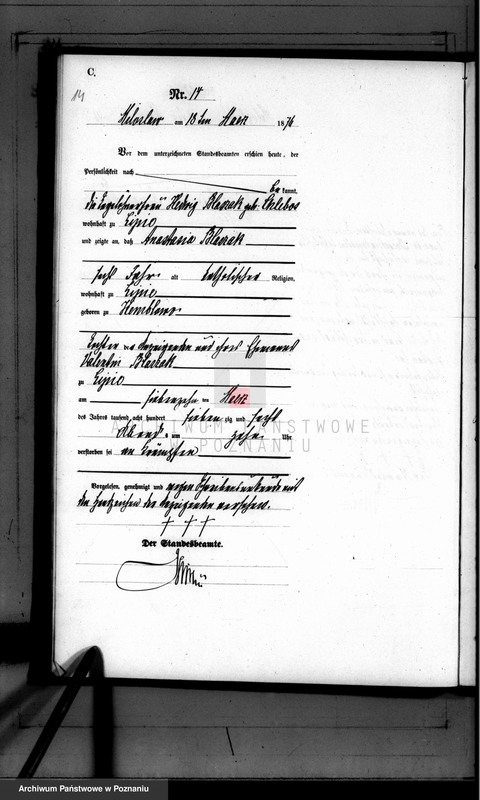 C.
14
Nr. 14
Miloslaw am 18 ten Maerz 1876
Vor dem unterzeichneten Standesbeamten erschien heute, der
Persönlichkeit nach
be kannt,
die Tagelöhnerfrau Hedwig Blaszak geb. Chlebos
wohnhaft zu Lipie
und zeigte an, daß Anastasia Blaszak
sechs Jahr alt katholischer Religion,
wohnhaft zu Lipie
geboren zu
Tochter des Anzeigenden und ihres Ehemanns
Valentin Blaszak
zu Lipie
am siebenzehn ten Maerz
des Jahres tausend acht hundert sieben zig und sechs
Abends um zehn Uhr
verstorben sei an Krämpfen
Vorgelesen, genehmigt und wegen Schreibensunkunde mit
den Handzeichen der Anzeigenden versehen.
† † †
Der Standesbeamte.
ARCHIWUM PAŃSTWOWE
W POZNANIU
Archiwum Państwowe w Poznaniu